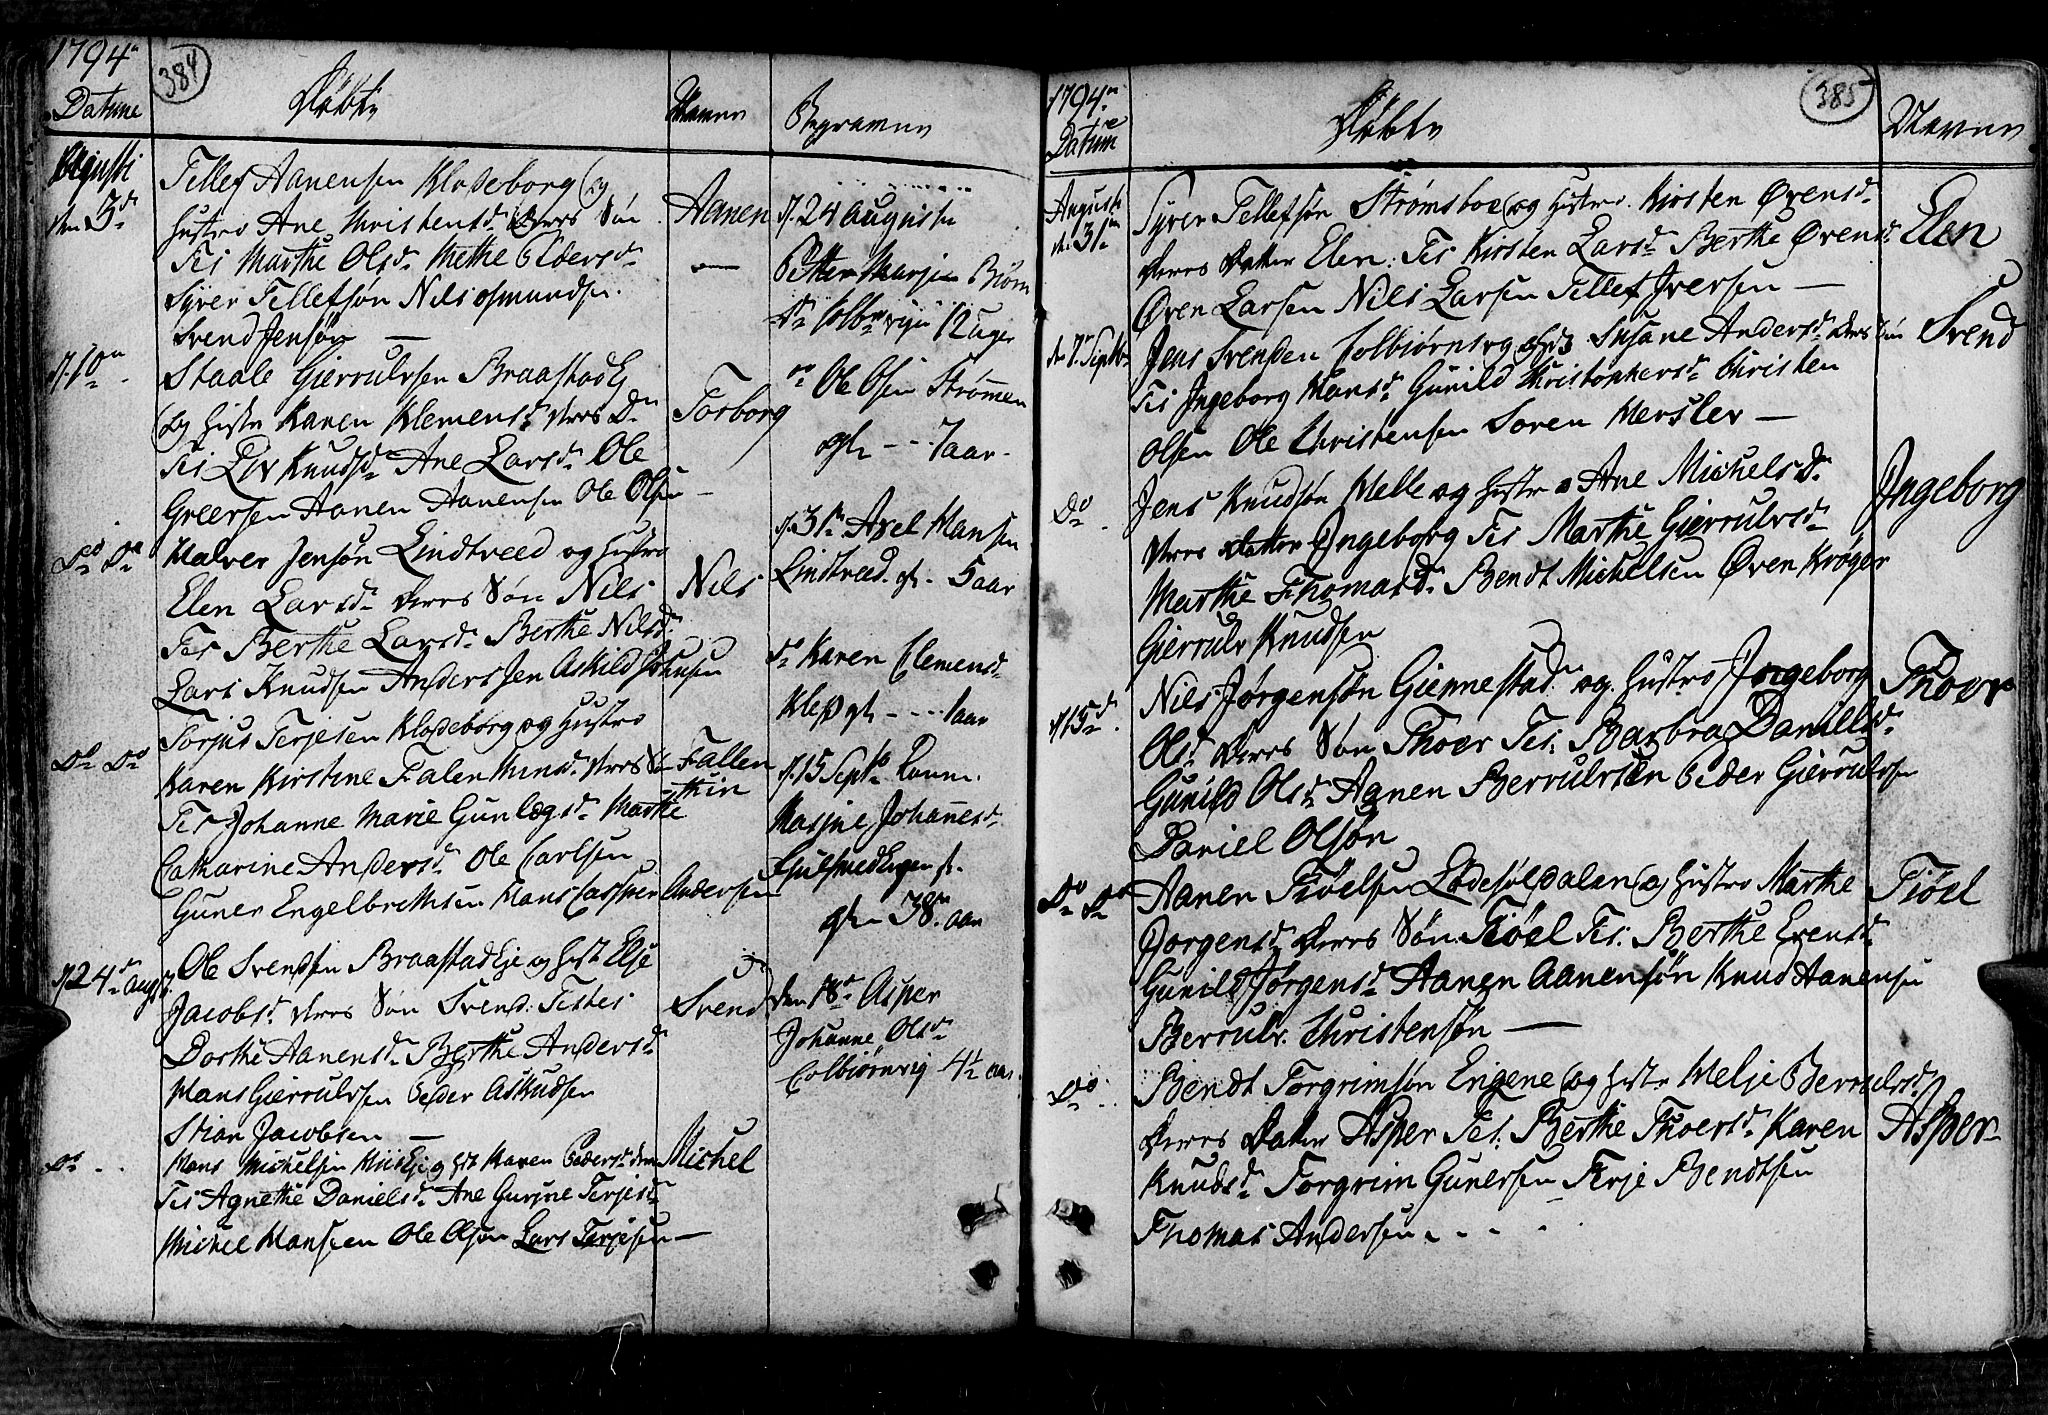 1794
384
Datum
Døbte
Navne
Begravne
Augusti
den 3d
Tellef Aanensen Klodeborg og
Hustro Ane Christensd. Deres Søn
Aanen
Tes Marthe Olsd. Methe Pedersd.
Syver Tellefsøn Nils osmundsen.
Svend Jensøn —
d. 10n
Staale Gierrulvsen Braastad Ej
og Hustr Karen Klemensd. deres Dr
Torborg
Tes Knudsd. Ane Larsd. Ole
Greersen Aanen Aanensen Ole Olsen —
Do Do
Halver Jensøn Lindtveed og Hustro
Elen Larsd. deres Søn Nils
Nils
Tes Berthe Larsd. Berthe Nilsd.
Lars Knudsen Anders Jen Askild
Torjus Terjesen Klodeborg og Hustro
Do Do
Karen Kirstine Falenthinsd. deres Sø
Fallen
thin
Tes Johanne Marie Gunlogsd. Marthe
Catharine Andersd. Ole Carlsen
Guner Engelbrethsen Hans Casper Andersen
d. 24d augs
Ole Svendsen Braastad Eje og Hust Else
Jacobsd. deres Søn Svend: Testes
Svend
Dorthe Aanensd. Berthe Andersd.
Hans Gierrulvsen Peder Asludsen
Stian Jacobsen —
Do
Hans Michelsen og Hst Karen Pedersd. deres
Michel
Tes Agnethe Danielsd. Ane Gurine Terjesd.
Michel Hansen Ole Olsøn Lars Terjesen —
d. 24 augusti
Petter Marjen Biørn
sd. Colbiørnsvigen 12 uger
do Ole Olsen Strømmen
gl. - - 7 aar -
d. 31n Axel Hansen
Lindtveed. gl. 5 aar
do Karen Clemensd.
Klep gl. - - 1 aar
d. 15 Septb
Marine Johannesd.
gl. 38 aar
den 18d Asper
Johanne Olsd.
Colbiørnsvig 4½ aar.
1794.
385
Datum
Døbte
Navne
Augusti
d. 31n
Syver Tellefsøn Strømsboe og Hustro. Kirsten Øvensd.
Elen
Deres Datter Elen: Tes Kirsten Larsd. Berthe Øvensd.
Øven Larsen Nils Larsen Tellef Iversen —
d. 7 Septb
Jens Svendsen Colbiørnsvg og H Susane Andersd. deres Søn
Svend
Tes Ingeborg Hansd. Gunild Christophersd. Christen
Olsen Ole Christensen Soren Hersler —
Do
Jens Knudsøn Helle og Hustr Ane Michelsd.
Ingeborg
deres datter Ingeborg Tes Marthe Gierrulvsd.
Marthe Thomasd. Bendt Michelsen Øven Krøger
Gierrulv Knudsen
d. 15d
Nils Jørgensøn Giennestad og Hustro Ingeborg
Thoer
Olsd. Deres Søn Thoer Tes: Barbra Danielsd.
Gunild Olsd. Aanen Berrulvsen Peder Gierrulvsen
Daniel Olsøn
Do Do
Aanen Tiøelsen Lødesøldalen og Hustro Marthe
Tiøel
Jorgensd. Deres Søn Tiøel Tes: Berthe Evensd.
Gunild Jørgensd. Aanen Aanensøn Knud Aanensen
Berrulv Christensøn —
Do
Bendt Torgrimsøn Engene og Hustr Helje Berrulvsd.
Asper
Deres Datter Asper Tes: Berthe Thoersd. Karen
Knudsd. Torgrim Gunersen Terje Bendtsen
Thomas Andersen